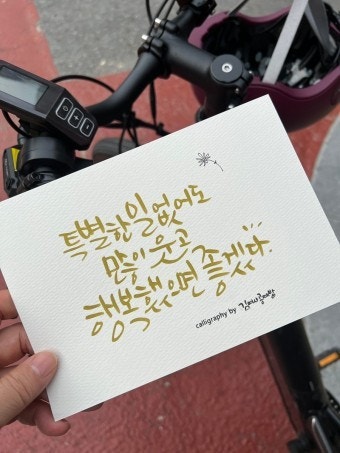 특별한 일 없어도
많이 웃고
행복했으면 좋겠다.
calligraphy by